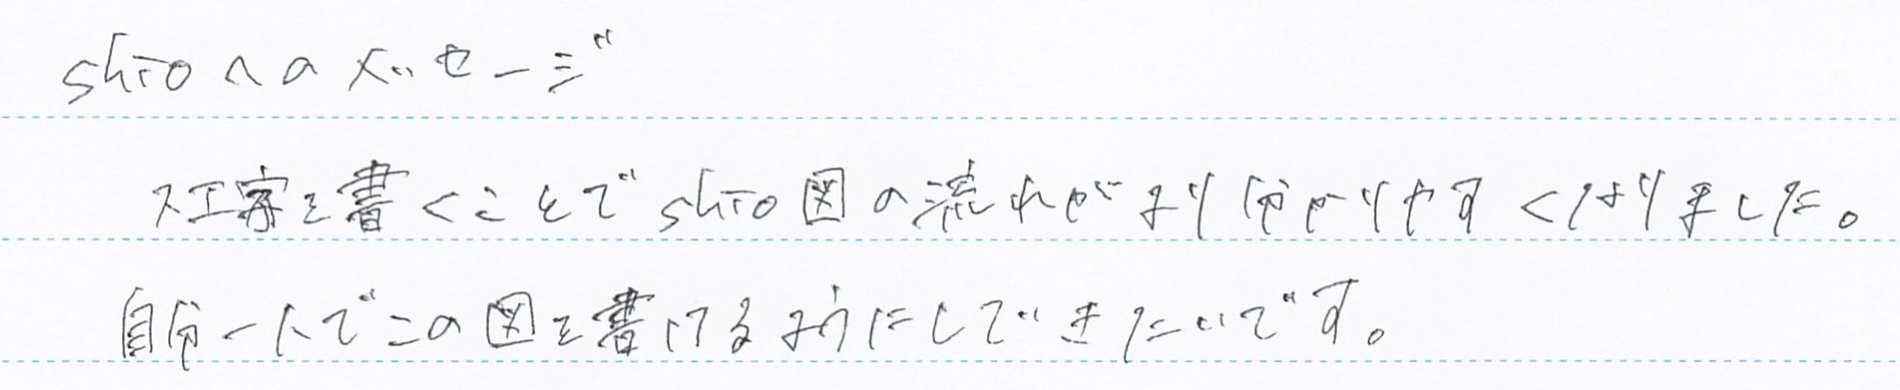 shiroへのメッセージ
文字を書くことでshiro図の流れがより分かりやすくなりました。
自分一人でこの図を書けるようにしていきたいです。